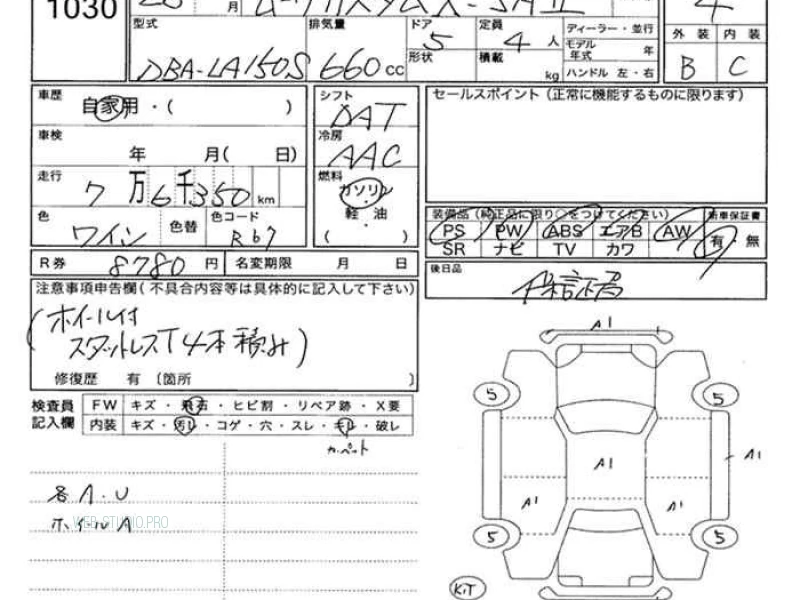 1030
月
型式 排気量 ドア 定員 ディーラー・並行
DBA-LA150S 660cc 5 4人 モデル年式 年
形状 積載 kg ハンドル 左・右
外装 内装
4
B C
車歴 自家用・( )
シフト DAT
セールスポイント(正常に機能するものに限ります)
車検 年 月( 日)
冷房 AAC
走行 7万6千350km
燃料 ガソリン
軽・油
( )
色 ワイン 色替 色コード R67
装備品(純正品に限り○をつけてください) 新車保証書
PS PW ABS エアB AW 有・無
SR ナビ TV カワ
R券 8780円 名変期限 月 日
後日品
注意事項申告欄(不具合内容等は具体的に記入して下さい)
(ホイール付
スタットレスT4本積み)
修復歴 有〔箇所 〕
検査員記入欄 FW キズ・飛石・ヒビ割・リペア跡・X要
内装 キズ・汚レ・コゲ・穴・スレ・キレ・破レ
カーペット
各A.U
ホイールA
WEB-STUDIO.PRO
A1
5 5
A1 A1
A1 A1
5 5
KiT